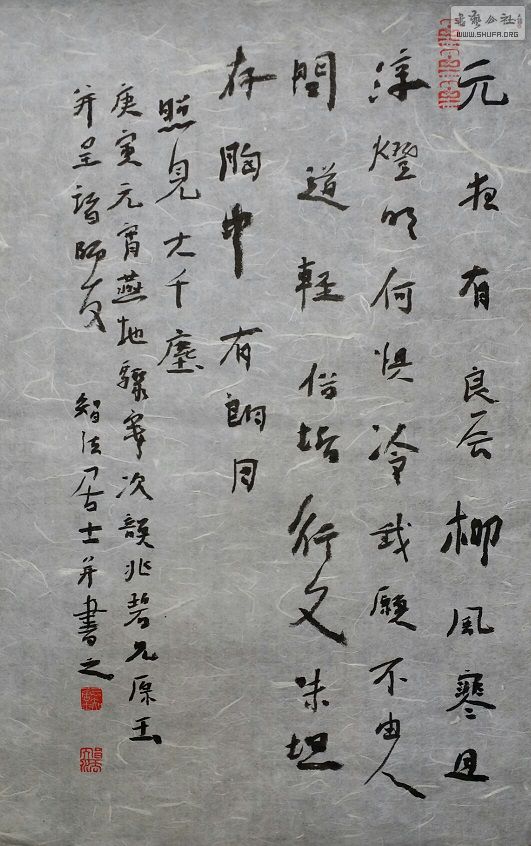 書藝公社
WWW.SHUFA.ORG
元夜有良辰柳風寒且
淳燈明何懼冷我願不由人
問道輕俗垢行文味坦
存胸中有朗月
照見大千塵
庚寅元宵燕地驟寒次韻兆碧兄原玉
并呈諸師友 智法居士并書之